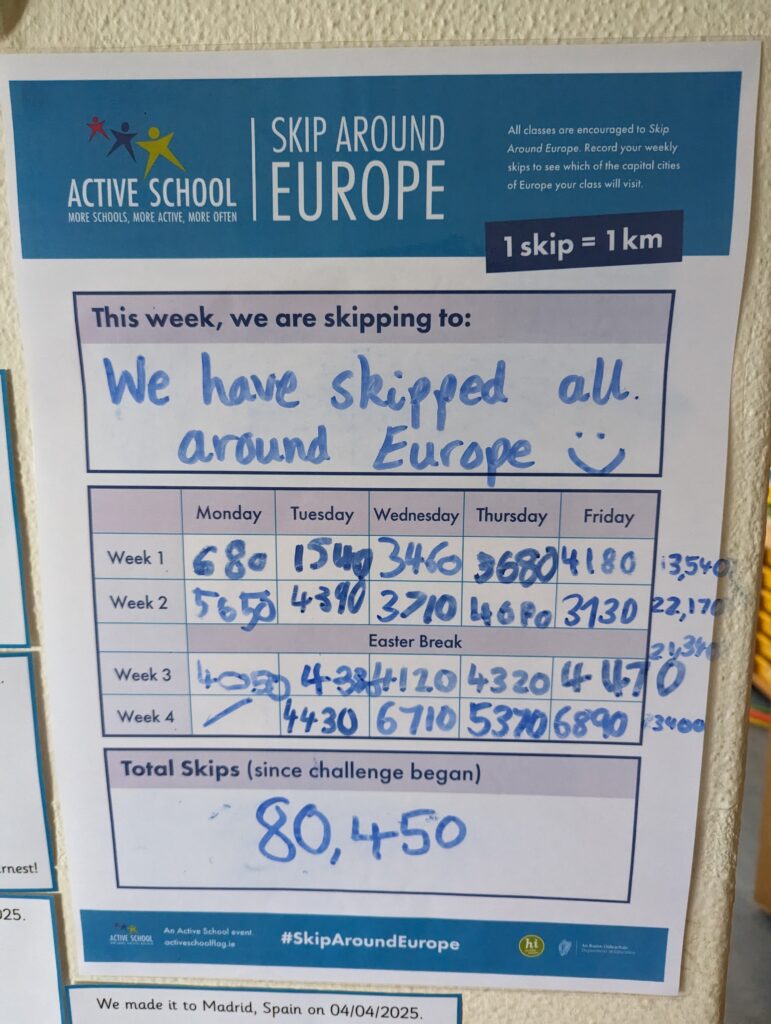 ACTIVE SCHOOL
MORE SCHOOLS, MORE ACTIVE, MORE OFTEN
SKIP AROUND
EUROPE
All classes are encouraged to Skip
Around Europe. Record your weekly
skips to see which of the capital cities
of Europe your class will visit.
1 skip = 1 km
This week, we are skipping to:
We have skipped all.
around Europe
Monday Tuesday Wednesday Thursday Friday
Week 1 680 1540 3460 3680 4180 13,540
Week 2 5650 4390 3710 4680 3730 22,170
Easter Break
21,340
Week 3 4050 4120 4320 4470
Week 4 4430 6710 5370 6890 23400
Total Skips (since challenge began)
80,450
ACTIVE SCHOOL
An Active School event
activeschoolflag.ie
#SkipAroundEurope
hi
Department of Education
rnest!
025.
We made it to Madrid, Spain on 04/04/2025.